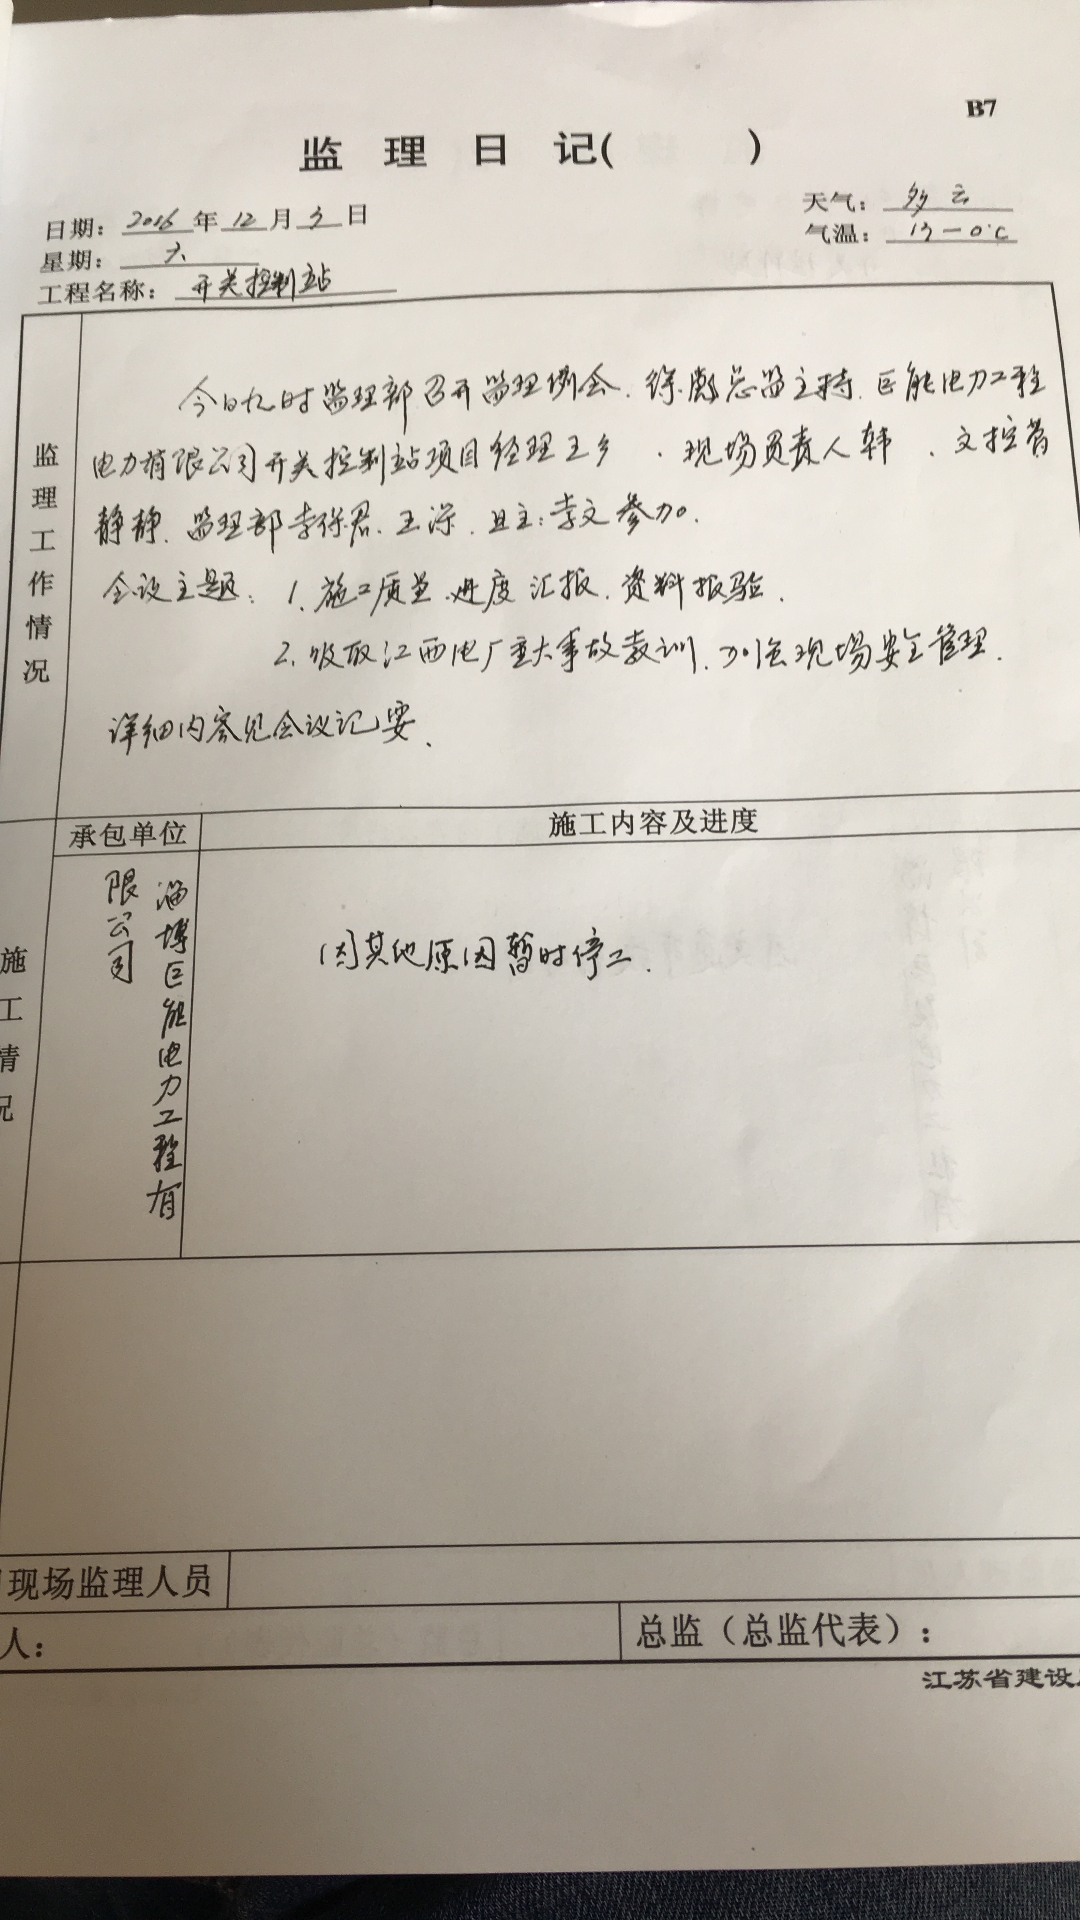 B7
监 理 日 记( )
日期: 2016 年 12 月 3 日
天气: 多云
星期: 六
气温: 13-0℃
工程名称: 开关控制站
监理工作情况
今日九时监理部召开监理例会.徐彪总监主持.巨能电力工程
电力有限公司开关控制站项目经理王乡 、现场负责人韩 、文控
静静.监理部李保君.王深.且主:李文参加。
会议主题: 1.施工质量.进度汇报.资料报验.
2.吸取江西电厂重大事故教训.加强现场安全管理.
详细内容见会议记要.
承包单位
施工内容及进度
施工情况
淄博巨能电力工程有
限公司
因其他原因暂时停工.
现场监理人员
人:
总监（总监代表）:
江苏省建设